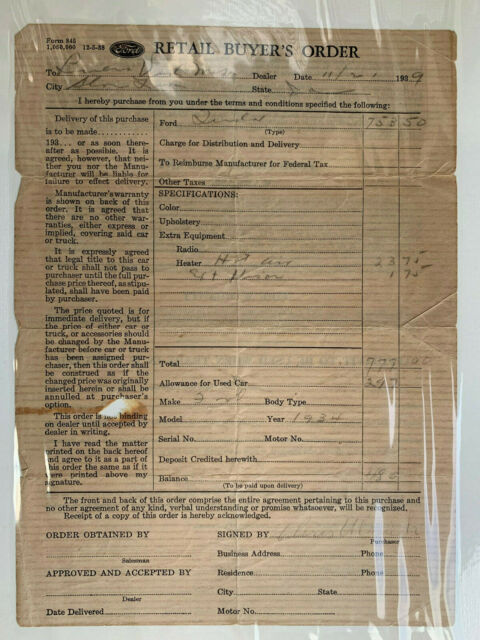 Form 845
1,000,000 12-5-38
Ford
RETAIL BUYER'S ORDER
To Dealer Date 11/21 1939
City State
I hereby purchase from you under the terms and conditions specified the following:
Delivery of this purchase
is to be made
193... or as soon there-
after as possible. It is
agreed, however, that nei-
ther you nor the Manu-
facturer will be liable for
failure to effect delivery.
Manufacturer's warranty
is shown on back of this
order. It is agreed that
there are no other war-
ranties, either express or
implied, covering said car
or truck.
It is expressly agreed
that legal title to this car
or truck shall not pass to
purchaser until the full pur-
chase price thereof, as stipu-
lated, shall have been paid
by purchaser.
The price quoted is for
immediate delivery, but if
the price of either car or
truck, or accessories should
be changed by the Manu-
facturer before car or truck
has been assigned pur-
chaser, then this order shall
be construed as if the
changed price was originally
inserted herein or shall be
annulled at purchaser's
option.
This order is not binding
on dealer until accepted by
dealer in writing.
I have read the matter
printed on the back hereof
and agree to it as a part of
this order the same as if it
were printed above my
signature.
Ford Tudor 753 50
(Type)
Charge for Distribution and Delivery
To Reimburse Manufacturer for Federal Tax
Other Taxes
SPECIFICATIONS:
Color
Upholstery
Extra Equipment
Radio
Heater Hot air 23 75
1 75
Total 779 00
Allowance for Used Car 297
Make Ford Body Type
Model Year 1934
Serial No. Motor No.
Deposit Credited herewith
Balance
(To be paid upon delivery)
The front and back of this order comprise the entire agreement pertaining to this purchase and
no other agreement of any kind, verbal understanding or promise whatsoever, will be recognized.
Receipt of a copy of this order is hereby acknowledged.
ORDER OBTAINED BY
Salesman
APPROVED AND ACCEPTED BY
Dealer
Date Delivered
SIGNED BY
Purchaser
Business Address Phone
Residence Phone
City State
Motor No.